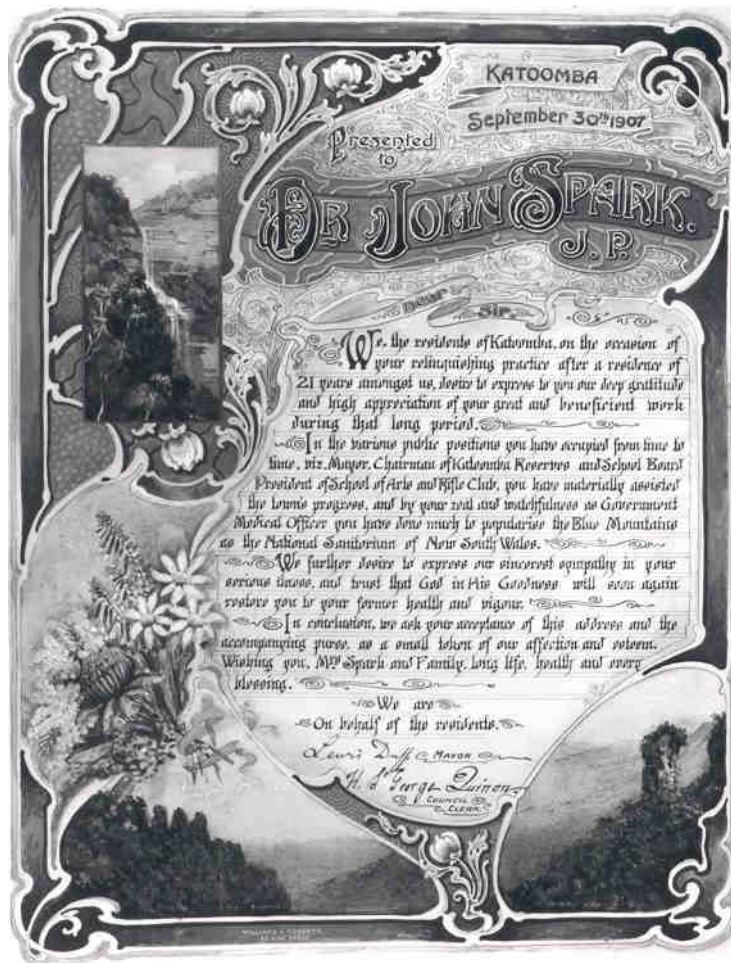 KATOOMBA
September 30th 1907
Presented
to
DR JOHN SPARK.
J. P.
Dear Sir,
We, the residents of Katoomba, on the occasion of
your relinquishing practice after a residence of
21 years amongst us, desire to express to you our deep gratitude
and high appreciation of your great and beneficent work
during that long period.
In the various public positions you have occupied from time to
time, viz. Mayor, Chairman of Katoomba Reserves and School Board
President of School of Arts and Rifle Club, you have materially assisted
the town's progress, and by your zeal and watchfulness as Government
Medical Officer you have done much to popularise the Blue Mountains
as the National Sanitorium of New South Wales.
We further desire to express our sincerest sympathy in your
serious illness, and trust that God in His Goodness will soon again
restore you to your former health and vigour.
In conclusion, we ask your acceptance of this address and the
accompanying purse, as a small token of our affection and esteem.
Wishing you, Mrs Spark and Family, long life, health and every
blessing.
We are
On behalf of the residents.
Lewis Duff MAYOR
H. St George Quinon
COUNCIL
CLERK.